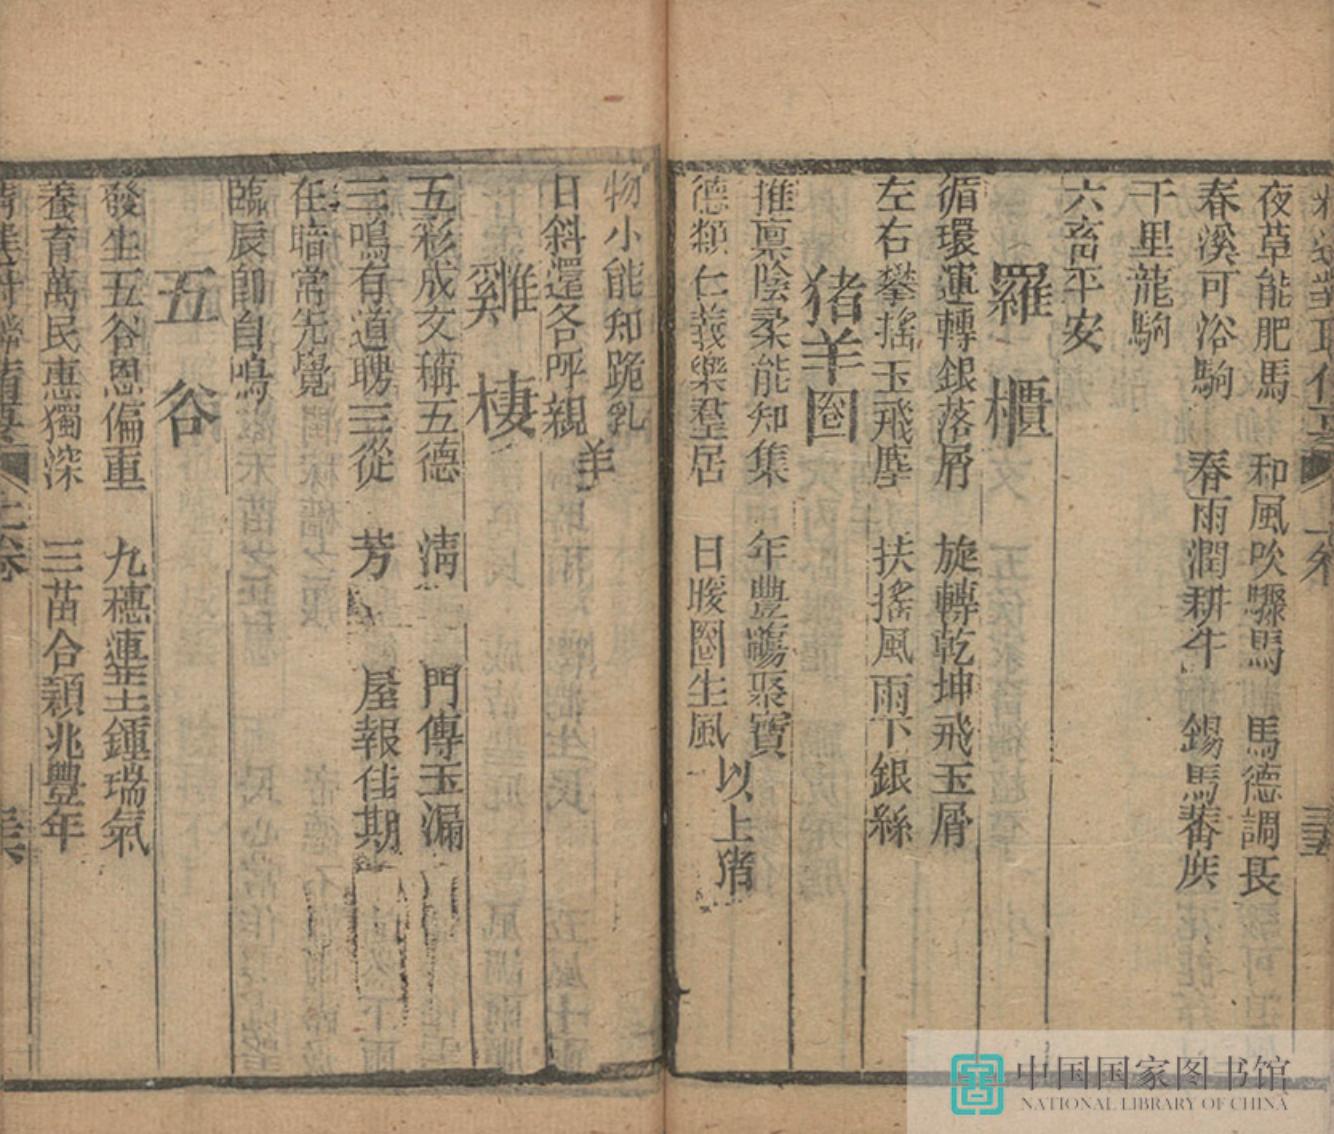 夜草能肥馬 和風吹驟馬 馬德調長
春溪可浴駒 春雨潤耕牛 錫馬蕃庶
千里龍駒
六畜平安
羅櫃
循環運轉銀落屑 旋轉乾坤飛玉屑
左右攀搖玉飛塵 扶搖風雨下銀絲
猪羊圈
推原陰柔能知集 年豐豵聚寶
德類仁義樂羣居 日暖圈生風
以上猪
物小能知跪乳
日斜還各呼親
羊
雞棲
五彩成文稱五德 淸 門傳玉漏
三鳴有道聘三從 芳 屋報佳期
在暗常先覺
臨辰卽自鳴
五谷
發生五谷恩偏重 九穗連莖鍾瑞氣
養育萬民恵獨深 三苗合穎兆豐年
上卷
中国国家图书馆
NATIONAL LIBRARY OF CHINA